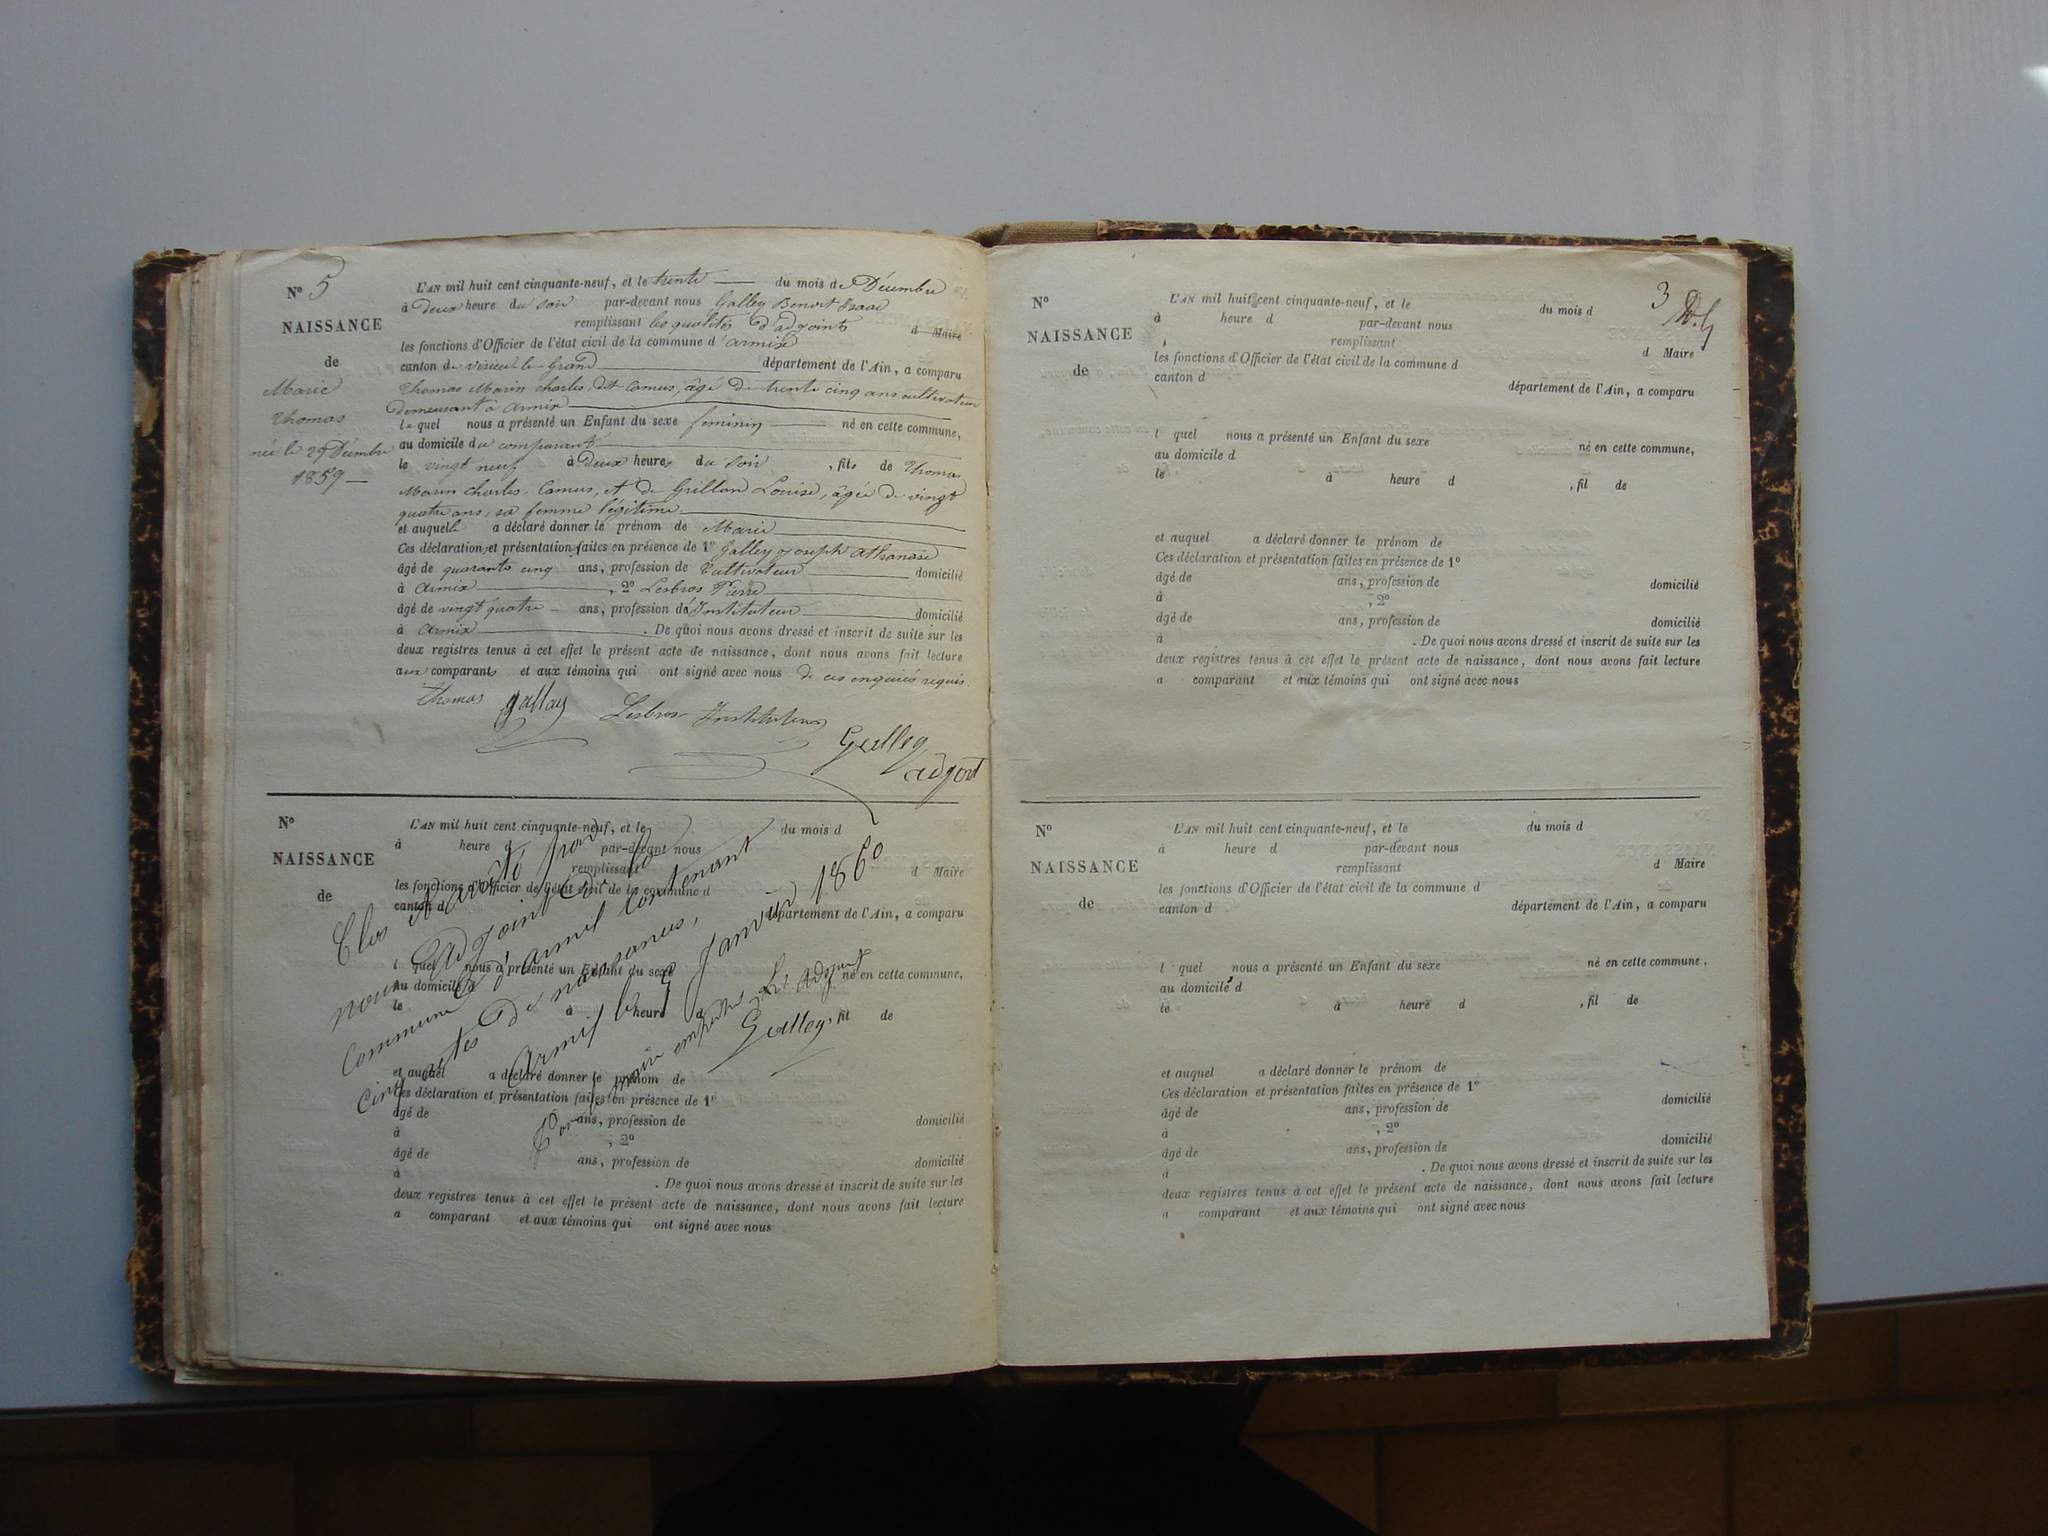 N° 5
NAISSANCE
de
Marie
Thomas
née le 29 Décembre
1859 —
L'AN mil huit cent cinquante-neuf, et le trente — du mois de Décembre
à deux heure du soir par-devant nous Galley Benoit Isaac
remplissant les qualités d'adjoint d Maire
les fonctions d'Officier de l'état civil de la commune d'armix
canton de virieu-le-Grand département de l'Ain, a comparu
Thomas Marin charles, dit Camus, âgé de trente cinq ans cultivateur
demeurant à armix
lequel nous a présenté un Enfant du sexe feminin né en cette commune,
au domicile du comparant
le vingt neuf à deux heures du soir, fils de Thomas
Marin charles Camus, et de Grillon Louise, âgée de vingt
quatre ans, sa femme légitime
et auquel a déclaré donner le prénom de Marie
Ces déclaration et présentation faites en présence de 1° Galley joseph athanase
âgé de quarante cinq ans, profession de Cultivateur domicilié
à Armix, 2° Lesbros Pierre
âgé de vingt quatre ans, profession d'Instituteur domicilié
à Armix. De quoi nous avons dressé et inscrit de suite sur les
deux registres tenus à cet effet le présent acte de naissance, dont nous avons fait lecture
aux comparants et aux témoins qui ont signé avec nous de ces enquis requis.
Thomas Galley Lesbros Instituteur
Galley
adjoint
N°
NAISSANCE
de
L'AN mil huit cent cinquante-neuf, et le du mois d
à heure d par-devant nous
remplissant d Maire
les fonctions d'Officier de l'état civil de la commune d
canton d département de l'Ain, a comparu
l quel nous a présenté un Enfant du sexe né en cette commune,
au domicile d
le à heure d , fil de
et auquel a déclaré donner le prénom de
Ces déclaration et présentation faites en présence de 1°
âgé de ans, profession de domicilié
à , 2°
âgé de ans, profession de domicilié
à . De quoi nous avons dressé et inscrit de suite sur les
deux registres tenus à cet effet le présent acte de naissance, dont nous avons fait lecture
a comparant et aux témoins qui ont signé avec nous
Clos et arrêté par
nous adjoint de la
Commune d'armix contenant
cinq actes de naissances,
Armix le 1 Janvier 1860
Pour le maire empêché L'Adjoint
Galley
3
N°
NAISSANCE
de
L'AN mil huit cent cinquante-neuf, et le du mois d
à heure d par-devant nous
remplissant d Maire
les fonctions d'Officier de l'état civil de la commune d
canton d département de l'Ain, a comparu
l quel nous a présenté un Enfant du sexe né en cette commune,
au domicile d
le à heure d , fil de
et auquel a déclaré donner le prénom de
Ces déclaration et présentation faites en présence de 1°
âgé de ans, profession de domicilié
à , 2°
âgé de ans, profession de domicilié
à . De quoi nous avons dressé et inscrit de suite sur les
deux registres tenus à cet effet le présent acte de naissance, dont nous avons fait lecture
a comparant et aux témoins qui ont signé avec nous
N°
NAISSANCE
de
L'AN mil huit cent cinquante-neuf, et le du mois d
à heure d par-devant nous
remplissant d Maire
les fonctions d'Officier de l'état civil de la commune d
canton d département de l'Ain, a comparu
l quel nous a présenté un Enfant du sexe né en cette commune,
au domicile d
le à heure d , fil de
et auquel a déclaré donner le prénom de
Ces déclaration et présentation faites en présence de 1°
âgé de ans, profession de domicilié
à , 2°
âgé de ans, profession de domicilié
à . De quoi nous avons dressé et inscrit de suite sur les
deux registres tenus à cet effet le présent acte de naissance, dont nous avons fait lecture
a comparant et aux témoins qui ont signé avec nous